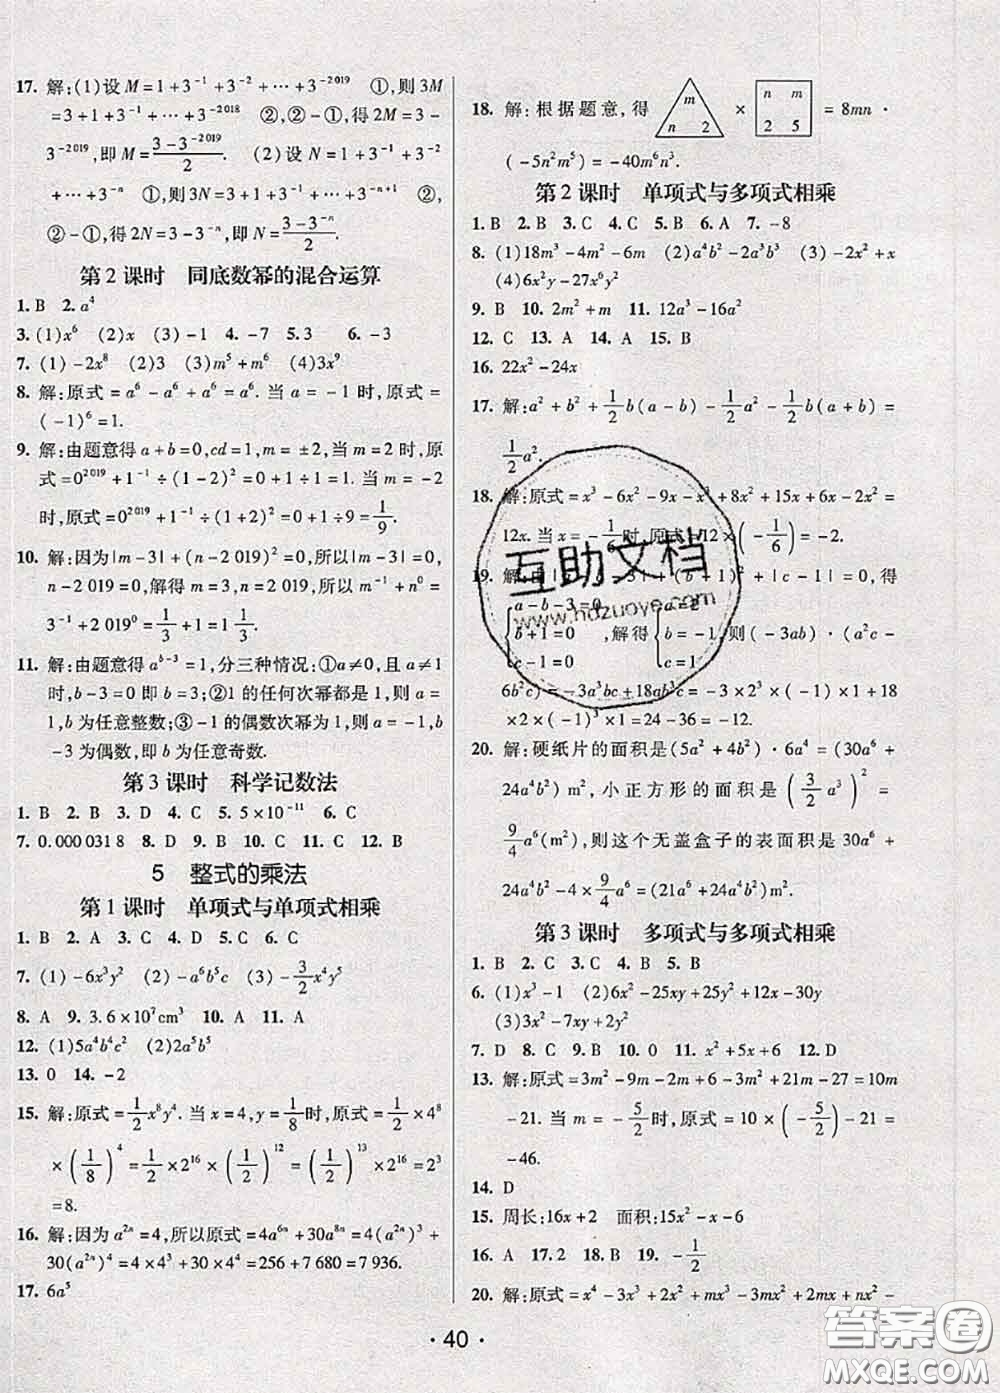 17. 解:(1)设 M=1+3⁻¹+3⁻²+…+3⁻²⁰¹⁹ ①,则 3M
=3+1+3⁻¹+…+3⁻²⁰¹⁸ ②,②-①,得 2M=3-
3⁻²⁰¹⁹,即 M=(3-3⁻²⁰¹⁹)/2. (2)设 N=1+3⁻¹+3⁻²
+…+3⁻ⁿ ①,则 3N=3+1+3⁻¹+…+ ②,
②-①,得 2N=3-3⁻ⁿ,即 N=(3-3⁻ⁿ)/2.
第 2 课时 同底数幂的混合运算
1. B 2. a⁴
3. (1)x⁶ (2)x (3)-1 4. -7 5.3 6. -3
7. (1)-2x⁸ (2)3 (3)m⁵+m⁶ (4)3x⁹
8. 解:原式=a⁶-a⁶+a⁶=a⁶. 当 a=-1 时,原式=
(-1)⁶=1.
9. 解:由题意得 a+b=0,cd=1,m=±2,当 m=2 时,原
式=0²⁰¹⁹+1⁻¹÷(1-2)⁰=0+1÷1=1. 当 m=-2
时,原式=0²⁰¹⁹+1⁻¹÷(1+2)²=0+1÷9=1/9.
10. 解:因为|m-3|+(n-2 019)²=0,所以|m-3|=0,
n-2 019=0,解得 m=3,n=2 019,所以 m⁻¹+n⁰=
3⁻¹+2 019⁰=1/3+1=4/3.
11. 解:由题意得 aᵇ⁻³=1,分三种情况:①a≠0,且 a≠1
时,b-3=0 即 b=3;②1 的任何次幂都是 1,所以 a=
1,b 为任意整数;③-1 的偶数次幂为 1,则 a=-1,b
-3 为偶数,即 b 为任意奇数.
第 3 课时 科学记数法
1. B 2. B 3. D 4. C 5. 5×10⁻¹¹ 6. C
7. 0.000 031 8 8. D 9. B 10. C 11. C 12. B
5 整式的乘法
第 1 课时 单项式与单项式相乘
1. B 2. A 3. C 4. D 5. C 6. C
7. (1)-6x³y² (2)-a⁶b⁵c (3)-3/2x⁴y⁵
8. A 9. 3.6×10⁷cm³ 10. A 11. A
12. (1)5a⁴b⁴c² (2)2a⁵b⁵
13. 0 14. -2
15. 解:原式=1/2x⁸y⁴. 当 x=4,y=1/8时,原式=1/2×4⁸
×(1/8)⁴=1/2×2¹⁶×(1/2)¹²=(1/2)¹³×2¹⁶=2³
=8.
16. 解:因为 a²ⁿ=4,所以原式=4a⁶ⁿ+30a⁸ⁿ=4(a²ⁿ)³+
30(a²ⁿ)⁴=4×4³+30×4⁴=256+7 680=7 936.
17. 6a⁵
18. 解:根据题意,得 m n 2 × n m 2 5 =8mn·
(-5n²m⁵)=-40m⁶n³.
第 2 课时 单项式与多项式相乘
1. B 2. B 3. C 4. C 5. B 6. A 7. -8
8. (1)18m³-4m²-6m (2)a⁴b²-2a³b³ (3)a³+a
(4)6x²y-27x⁶y²
9. B 10. 2m²+m 11. 12a³-16a²
12. C 13. A 14. A 15. B
16. 22x²-24x
17. 解:a²+b²+1/2b(a-b)-1/2a²-1/2b(a+b)=
1/2a².
18. 解:原式=x³-6x²-9x-x³+8x²+15x-2x²+6x=
12x. 当 x=-1/6时,原式=12×(-1/6)=-2.
19. 解:由|a-b-3|+(b+1)²+|c-1|=0,得
{a-b-3=0 {a=2
b+1=0 ,解得 b=-1,则(-3ab)·(a²c-
c-1=0 c=1
6b²c)=-3a³bc+18ab³c=-3×2³×(-1)×1+18
×2×(-1)³×1=24-36=-12.
20. 解:硬纸片的面积是(5a²+4b²)·6a⁴=(30a⁶+
24a⁴b²)m²,小正方形的面积是(3/2a³)²=
9/4a⁶(m²),则这个无盖盒子的表面积是 30a⁶+
24a⁴b²-4×9/4a⁶=(21a⁶+24a⁴b²)m².
第 3 课时 多项式与多项式相乘
1. B 2. C 3. C 4. B 5. B
6. (1)x³-1 (2)6x²-25xy+25y²+12x-30y
(3)3x²-7xy+2y²
7. D 8. C 9. B 10. 0 11. x²+5x+6 12. D
13. 解:原式=3m²-9m-2m-3m²+21m-27=10m
-21. 当 m=-5/2时,原式=10×(-5/2)-21=
-46.
14. D
15. 周长:16x+2 面积:15x²-x-6
16. A 17. 2 18. B 19. -1/2
20. 解:原式=x⁴-3x³+2x²+mx³-3mx²+2mx+nx²-
· 40 ·
互助文档
www.hdzuoye.com
答案圈
MXQE.COM